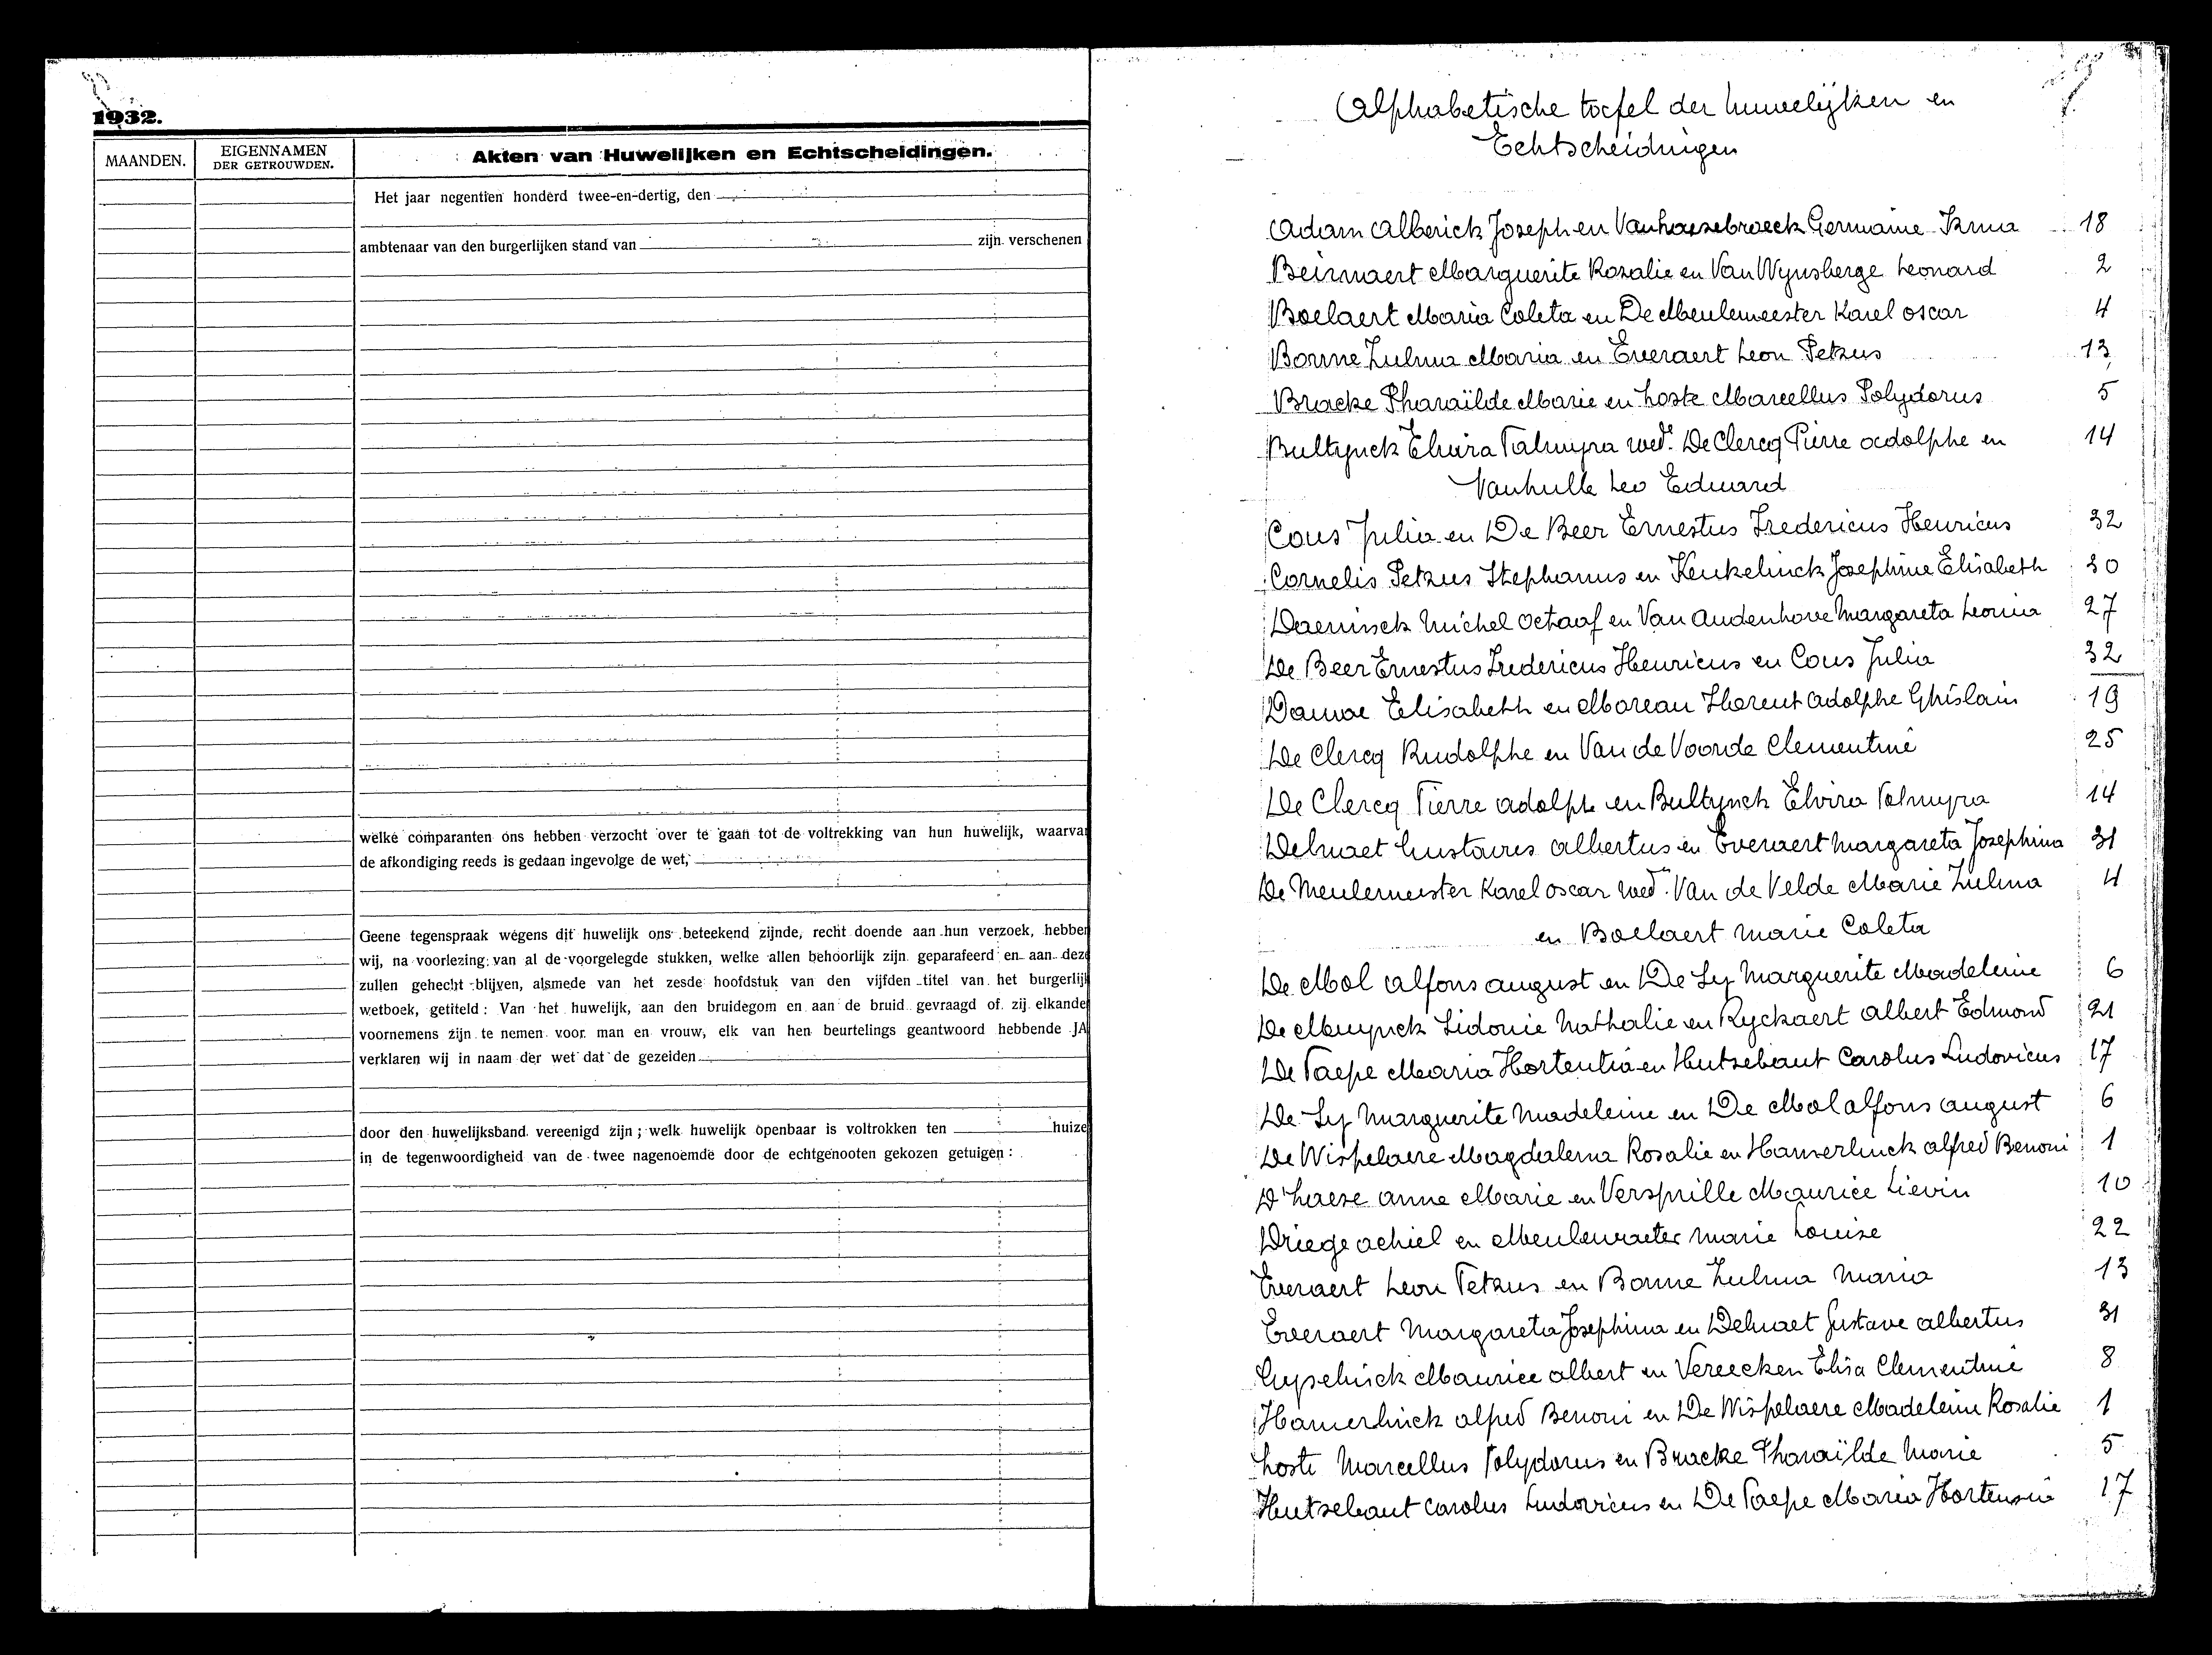 1932.
MAANDEN.
EIGENNAMEN
DER GETROUWDEN.
Akten van Huwelijken en Echtscheidingen.
Het jaar negentien honderd twee-en-dertig, den
ambtenaar van den burgerlijken stand van zijn verschenen
welke comparanten ons hebben verzocht over te gaan tot de voltrekking van hun huwelijk, waarva
de afkondiging reeds is gedaan ingevolge de wet,
Geene tegenspraak wegens dit huwelijk ons beteekend zijnde, recht doende aan hun verzoek, hebben
wij, na voorlezing van al de voorgelegde stukken, welke allen behoorlijk zijn geparafeerd en aan deze
zullen gehecht blijven, alsmede van het zesde hoofdstuk van den vijfden titel van het burgerlijk
wetboek, getiteld : Van het huwelijk, aan den bruidegom en aan de bruid gevraagd of zij elkande
voornemens zijn te nemen voor man en vrouw, elk van hen beurtelings geantwoord hebbende JA
verklaren wij in naam der wet dat de gezeiden
door den huwelijksband vereenigd zijn ; welk huwelijk openbaar is voltrokken ten huize
in de tegenwoordigheid van de twee nagenoemde door de echtgenooten gekozen getuigen :
Alphabetische tafel der huwelijken en
Echtscheidingen
Adam Alberick Joseph en Vanhaesebroeck Germaine Irma 18
Beirnaert Marguerite Rozalie en Van Wynsberge Leonard 2
Boelaert Maria Coleta en De Meulemeester Karel Oscar 4
Bonne Zulma Maria en Everaert Leon Petrus 13
Bracke Pharaïlde Marie en Hoste Marcellus Polydorus 5
Bultynck Elvira Palmyra wed.e De Clercq Pierre Adolphe en 14
Vanhulle Leo Eduard
Cous Julia en De Beer Ernestus Fredericus Henricus 32
Cornelis Petrus Stephanus en Keukelinck Josephine Elisabeth 30
Daeninck Michel Octaaf en Van Audenhove Margareta Leonia 27
De Beer Ernestus Fredericus Henricus en Cous Julia 32
Dauwe Elisabeth en Moreau Florent Adolphe Ghislain 19
De Clercq Rudolphe en Van de Voorde Clementine 25
De Clercq Pierre Adolph en Bultynck Elvira Palmyra 14
Delmaet Gustaves Albertus en Everaert Margareta Josephina 31
De Meulemeester Karel Oscar wed.n Van de Velde Marie Zulma 4
en Boelaert Marie Coleta
De Mol Alfons August en De Ly Marguerite Madeleine 6
De Muynck Sidonie Nathalie en Ryckaert Albert Edmond 21
De Paepe Maria Hortentia en Hutsebaut Carolus Ludovicus 17
De Ly Marguerite Madeleine en De Mol Alfons August 6
De Wispelaere Magdalena Rosalie en Hamerlinck Alfred Benoni 1
D'haese Anne Marie en Versprille Maurice Lievin 10
Driege Achiel en Meulenraeter Marie Louise 22
Everaert Leon Petrus en Bonne Zulma Maria 13
Everaert Margareta Josephina en Delmaet Gustave Albertus 31
Gyselinck Maurice Albert en Vereecken Elisa Clementine 8
Hamerlinck Alfred Benoni en De Wispelaere Madeleine Rosalie 1
Hoste Marcellus Polydorus en Bracke Pharaïlde Marie 5
Hutsebaut Carolus Ludovicus en De Paepe Maria Hortensia 17